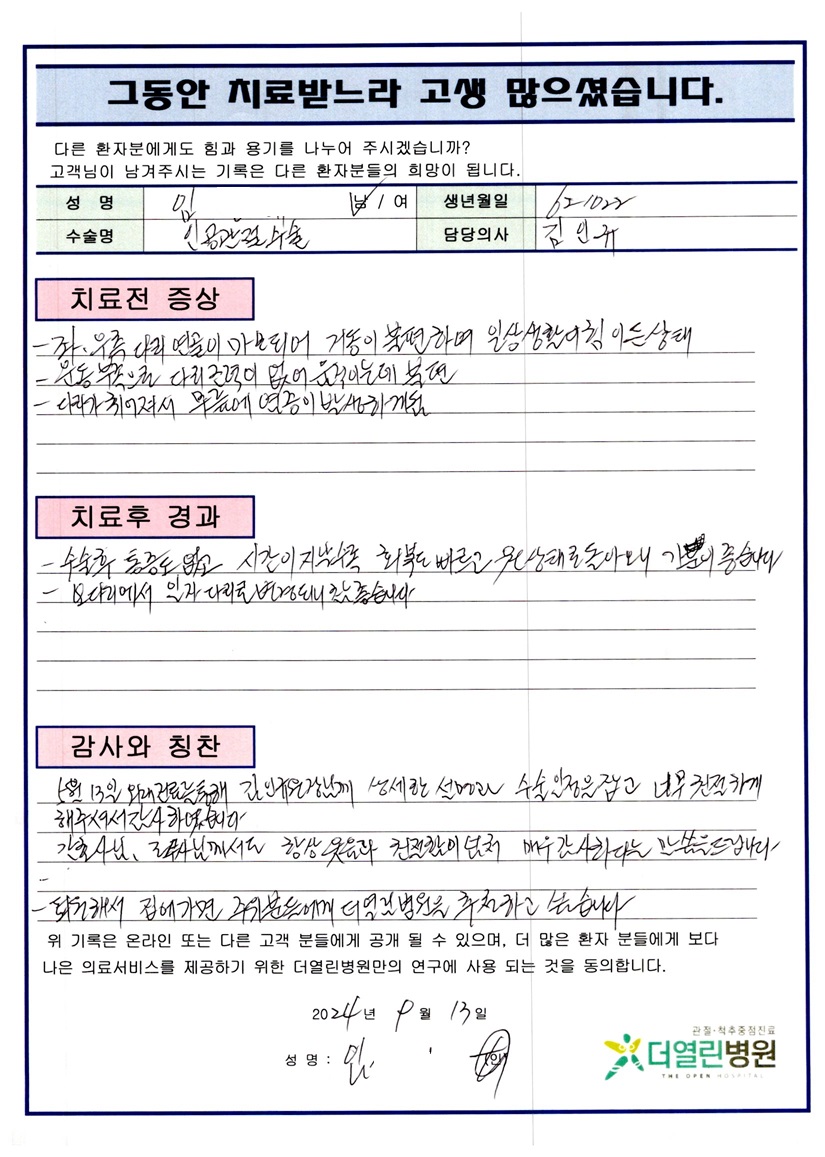 그동안 치료받느라 고생 많으셨습니다.
다른 환자분에게도 힘과 용기를 나누어 주시겠습니까?
고객님이 남겨주시는 기록은 다른 환자분들의 희망이 됩니다.
성 명 임 남 / 여 생년월일 621022
수술명 인공관절수술 담당의사 김인규
치료전 증상
- 좌.우측 다리 연골이 마모되어 거동이 불편하며 일상생활이 힘이든상태
- 운동부족으로 다리근력이 없어 움직이는데 불편
- 다리가 휘어져서 무릎에 염증이 발생하게됨
치료후 경과
- 수술후 통증도 없고 시간이 지날수록 회복도 빠르고 상태로 돌아오니 기분이 좋습니다
- 다리에서 일자 다리로 변경되니 좋습니다
감사와 칭찬
5월 13일 외래진료를통해 김인규원장님께 상세한 설명과 수술일정을잡고 너무 친절하게
해주셔서감사하였습니다
간호사님, 님께서도 항상 웃음과 친절함이 넘쳐 매우감사하다는 말씀을드립니다
-
- 퇴원해서 집에가면 주위분들에게 더열린병원을 추천하고 싶습니다
위 기록은 온라인 또는 다른 고객 분들에게 공개 될 수 있으며, 더 많은 환자 분들에게 보다
나은 의료서비스를 제공하기 위한 더열린병원만의 연구에 사용 되는 것을 동의합니다.
2024년 9월 13일
성 명 : 임 (인)
관절·척추중점진료
더열린병원
THE OPEN HOSPITAL